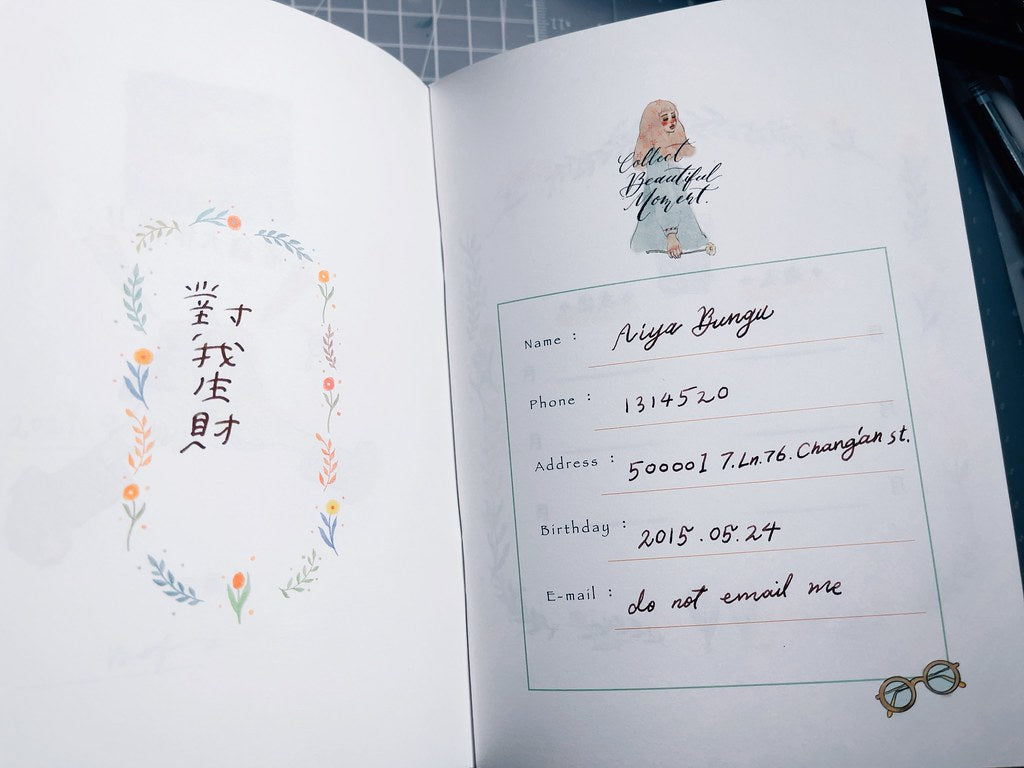 對
我
生
財
Collect
Beautiful
Moment.
Name : Aiya Bungu
Phone : 1314520
Address : 500001 7.Ln.76.Chang'an st.
Birthday : 2015.05.24
E-mail : do not email me